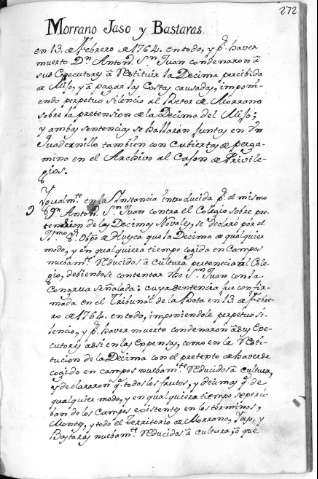 272
Morrano Jaso y Bastaras.
en 13. de Febrero de 1764. en todo, y pr. haver
muerto Dn. Anton. Sn. Juan condenaron a
sus Executores a restituir la Decima percibida
de Mijo, y a pagar las Costas causadas, imponi-
endo perpetuo silencio al Retor de Morrano
sobre la pretension de la Decima del Mijo:
y ambas sentencias se hallaran juntas en un
Quadernillo tambien con Cubiertas de perga-
mino en el Archivo al Cajon de Privile-
gios.
Ygualmte. en la Instancia introducida pr. el mismo
Dn. Anton. Sn. Juan contra el Colegio sobre pre-
tension de las Decimas Novales, se declaró por el
Sr. Obpo. de Huesca que la Decima de qualquiera
modo, y en qualquiera tiempo cogida en Campos
nuebamte. reducidos a cultura pertenecia al Cole-
gio, debiendose contentar Sn. Juan con la
Congrua señalada: cuya sentencia fue confir-
mada en el Tribunal de la Rota en 13 de Febre-
ro de 1764. en todo, imponiendole perpetuo si-
lencio, y pr. haver muerto condenaron a sus Exe-
cutores assi en las Expensas, como en la Resti-
tucion de la Decima con el pretexto de haverse
cogido en campos nuebamte. reducidos a cultura,
y declararon qe. todos los frutos, y decimas qe. de
qualquiere modo, y en qualquiera tiempo se perci-
ban de los Campos existentes en los terminos,
Montes, y todo el Territorio de Morrano, Jaso, y
Bastaras nuebamte. reducidos a cultura, ya qe.